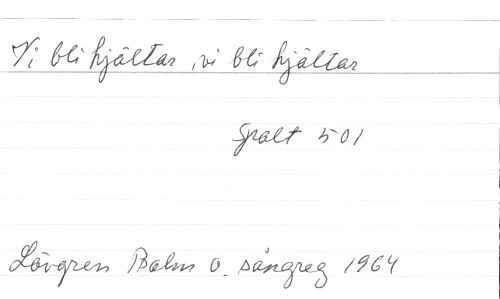 Vi bli hjältar, vi bli hjältar
Spalt 501
Lövgren Psalm o. sångreg 1964